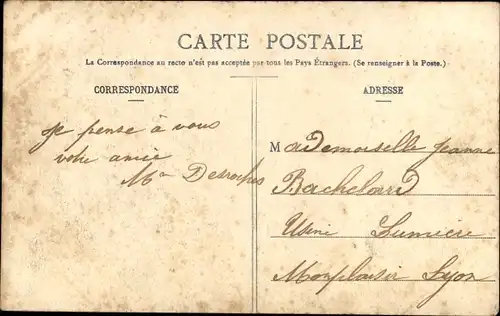 CARTE POSTALE
La Correspondance au recto n'est pas acceptée par tous les Pays Étrangers. (Se renseigner à la Poste.)
CORRESPONDANCE
ADRESSE
Je pense à vous
votre amie
Desroches
Mademoiselle Jeanne
Bachelard
Usine Lumiere
Monplaisir Lyon